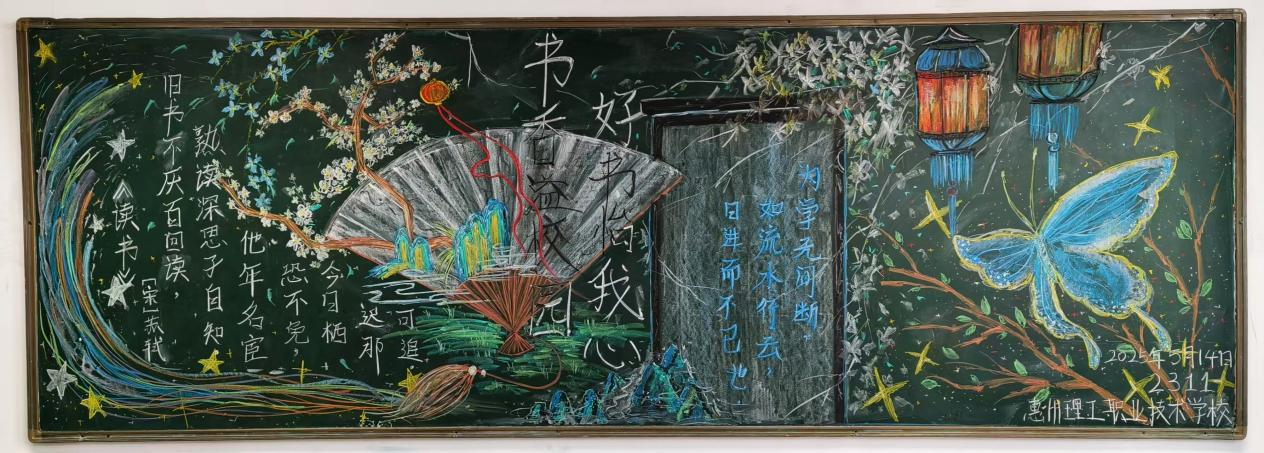 《读书》
[宋]苏轼
旧书不厌百回读，
熟读深思子自知
他年名宦
恐不免，
今日栖
迟那
可追
书香盈校园
好书怡我心
为学无间断，
如流水行云，
日进而不已也.
2025年5月14日
2311
惠州理工职业技术学校